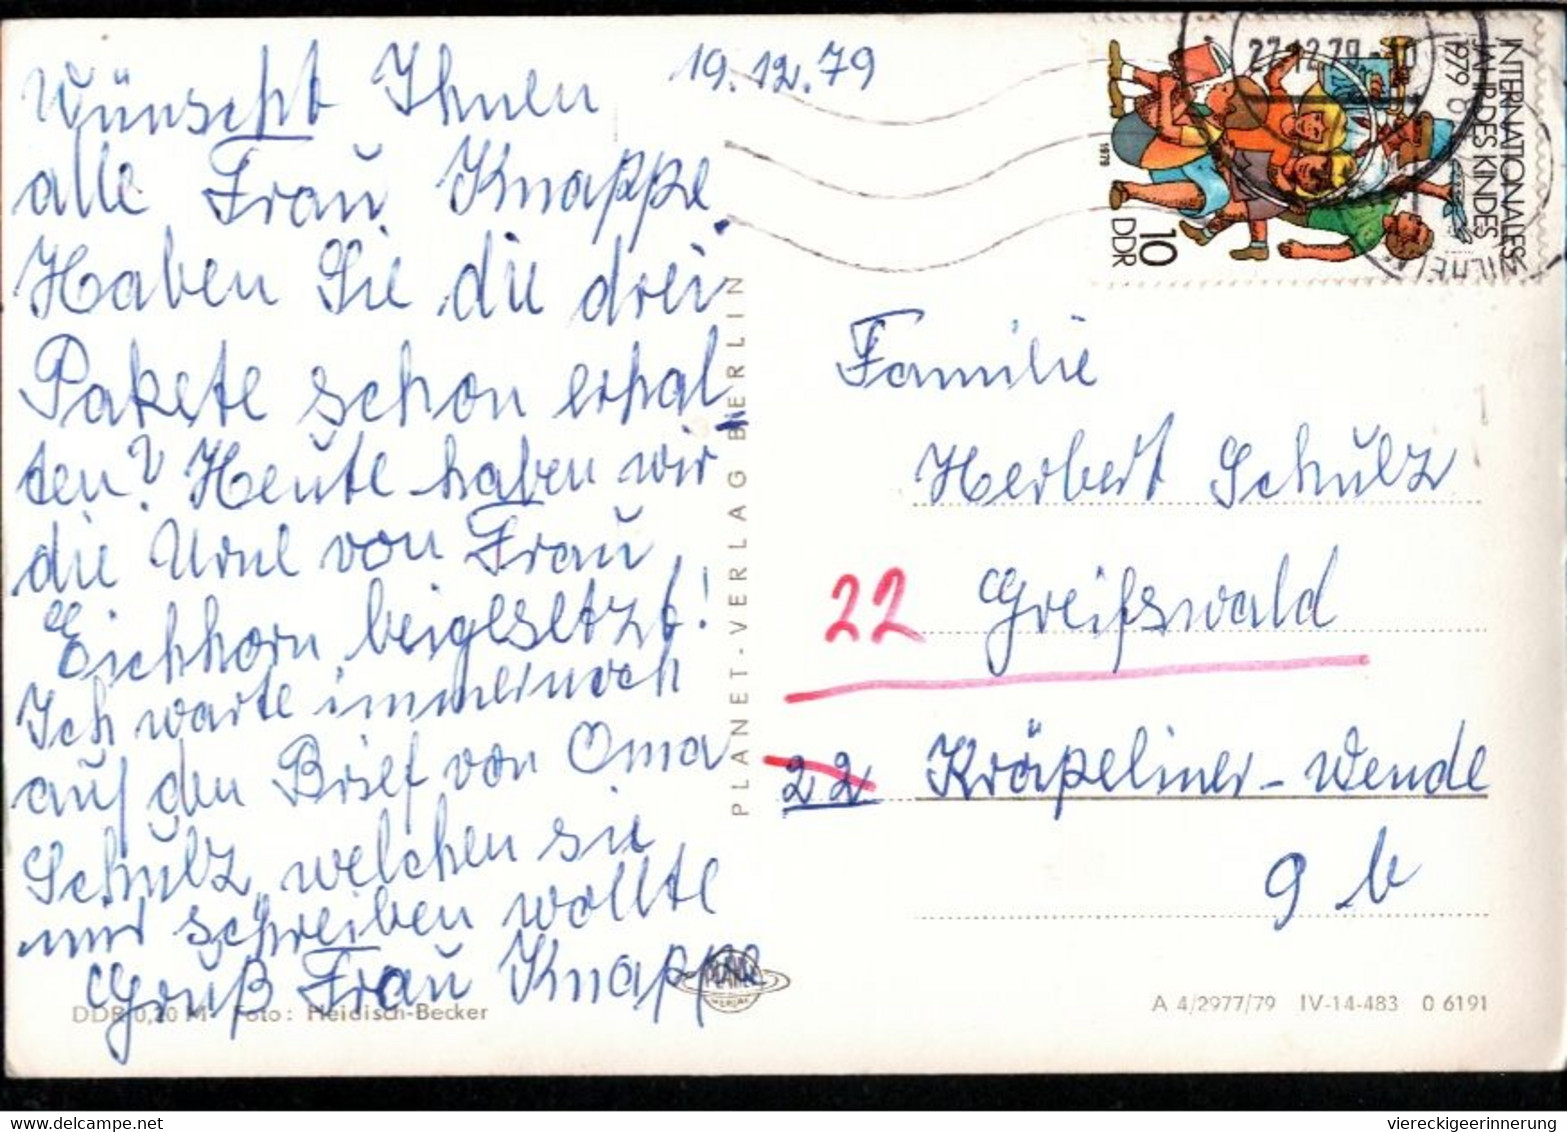 19.12.79
Wünscht Ihnen
alle Frau Knappe.
Haben Sie die drei
Pakete schon erhal
ten? Heute haben wir
die Urne von Frau
Eichhorn beigesetzt!
Ich warte immernoch
auf den Brief von Oma
Schulz, welchen sie
mir schreiben wollte
Gruß Frau Knappe
DDR 0,20 M Foto: Heidisch-Becker
PLANET-VERLAG BERLIN
PLANET
VERLAG
27.12.79
INTERNATIONALES
JAHR DES KINDES
1979
10
DDR
1979
Familie
Herbert Schulz
22 Greifswald
22 Kröpeliner-Wende
9 b
A 4/2977/79 IV-14-483 0 6191
viereckigeerinnerung